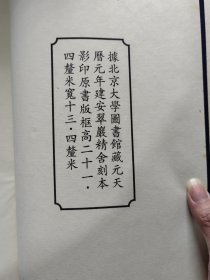 據北京大學圖書館藏元天
曆元年建安翠巖精舍刻本
影印原書版框高二十一·
四釐米寬十三·四釐米